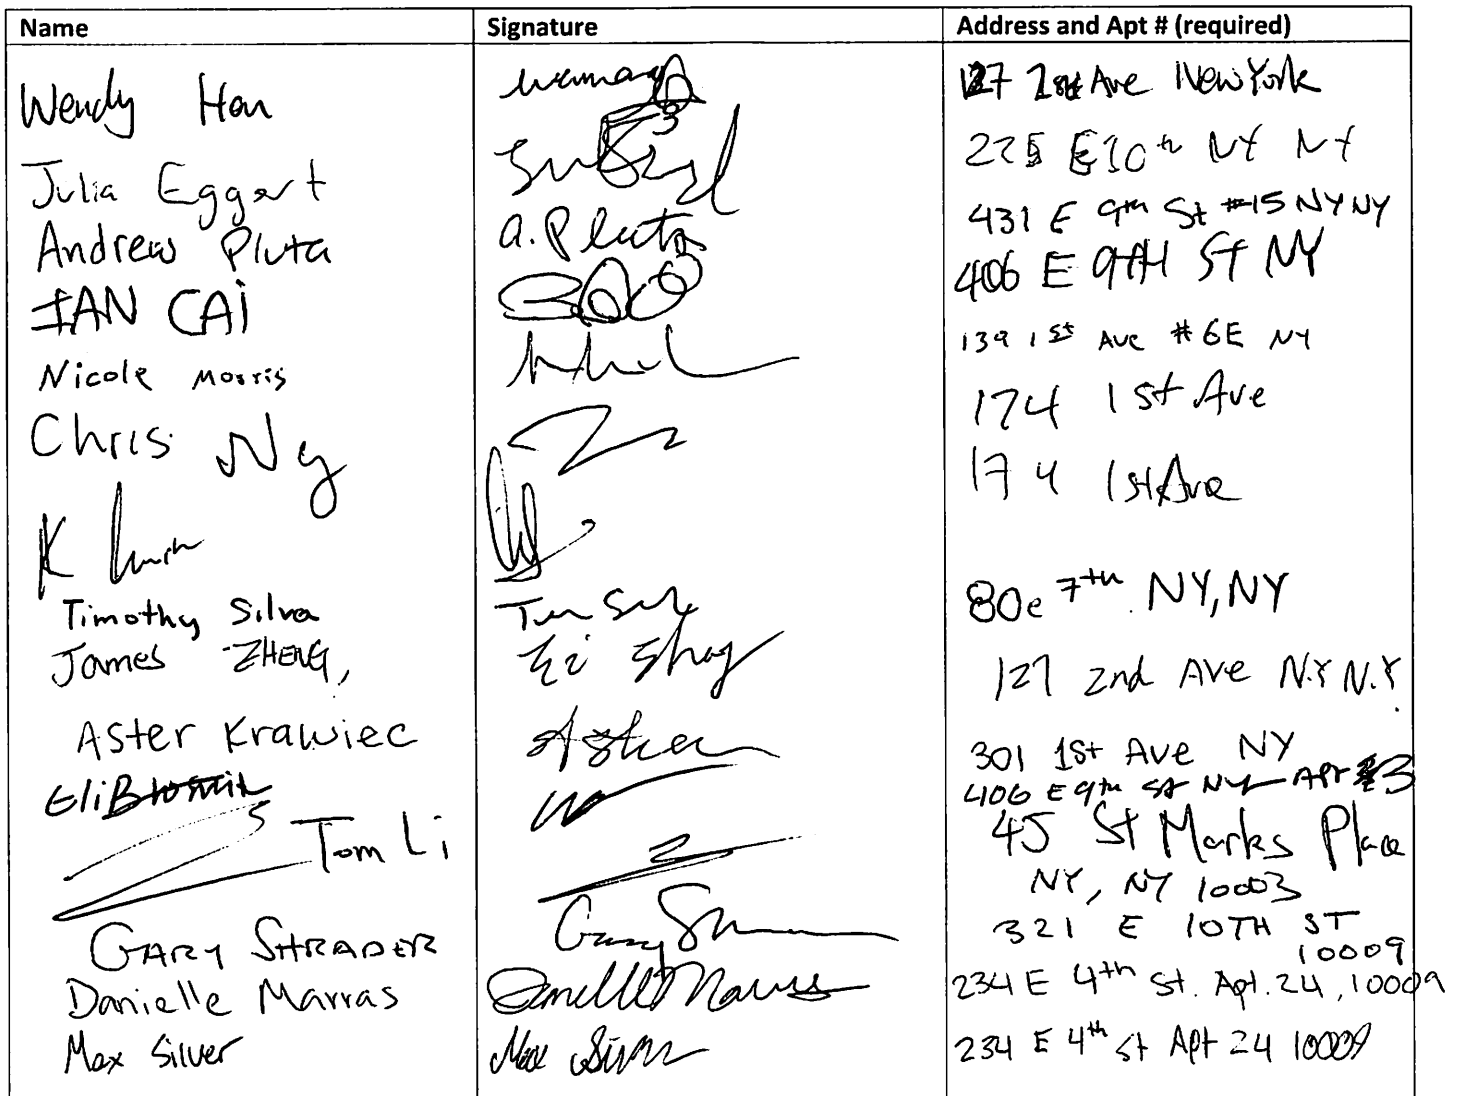 Name Signature Address and Apt # (required)
Wendy Han 127 1st Ave New York
Julia Eggert 225 E 10th NY NY
Andrew Pluta a. Pluta 431 E 9th St #15 NY NY
IAN CAI 406 E 9TH ST NY
Nicole Morris 139 1st Ave #6E NY
Chris Ny 174 1st Ave
K 174 1st Ave
Timothy Silva Tim 80e 7th NY, NY
James ZHENG, 127 2nd Ave N.Y N.Y.
Aster Krawiec Aster 301 1st Ave NY
Eli 406 E 9th St NY Apt 3
Tom Li 45 St Marks Place
NY, NY 10003
GARY SHRADER Gary 321 E 10TH ST
10009
Danielle Marras Danielle Marras 234 E 4th St. Apt. 24, 10009
Max Silver Max Silver 234 E 4th St Apt 24 10009